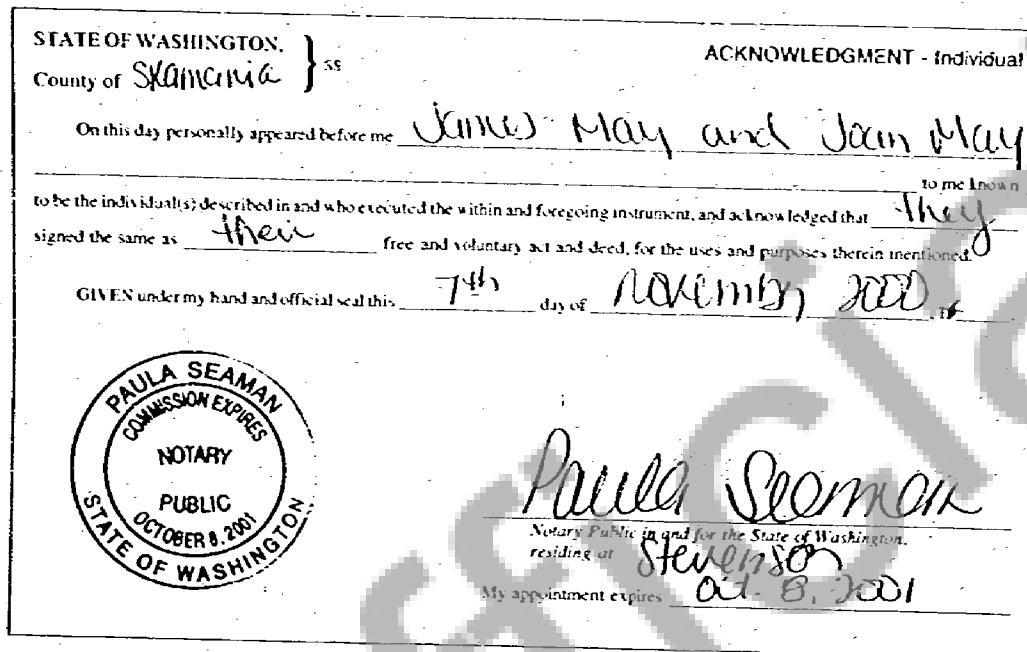 STATE OF WASHINGTON,
County of Skamania } ss
ACKNOWLEDGMENT - Individual
On this day personally appeared before me James May and Joan May
to me known
to be the individual(s) described in and who executed the within and foregoing instrument, and acknowledged that they
signed the same as their free and voluntary act and deed, for the uses and purposes therein mentioned.
GIVEN under my hand and official seal this 7th day of November 2000,
PAULA SEAMAN
COMMISSION EXPIRES
NOTARY
PUBLIC
OCTOBER 8, 2001
STATE OF WASHINGTON
Paula Seaman
Notary Public in and for the State of Washington,
residing at Stevenson
My appointment expires Oct. 8, 2001